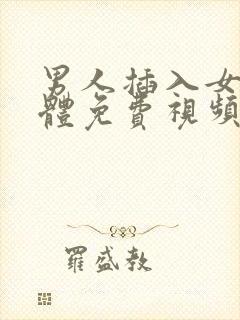 男人插入女
體免費視頻
羅盛教